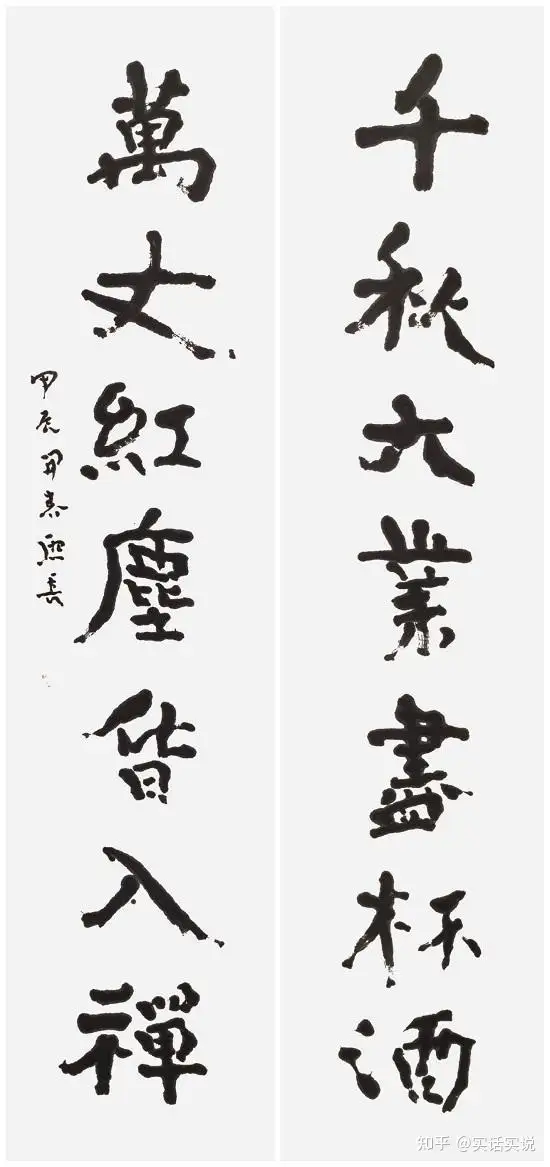 千秋大業盡杯酒
萬丈紅塵皆入禪
甲辰開春熙長
知乎 @实话实说